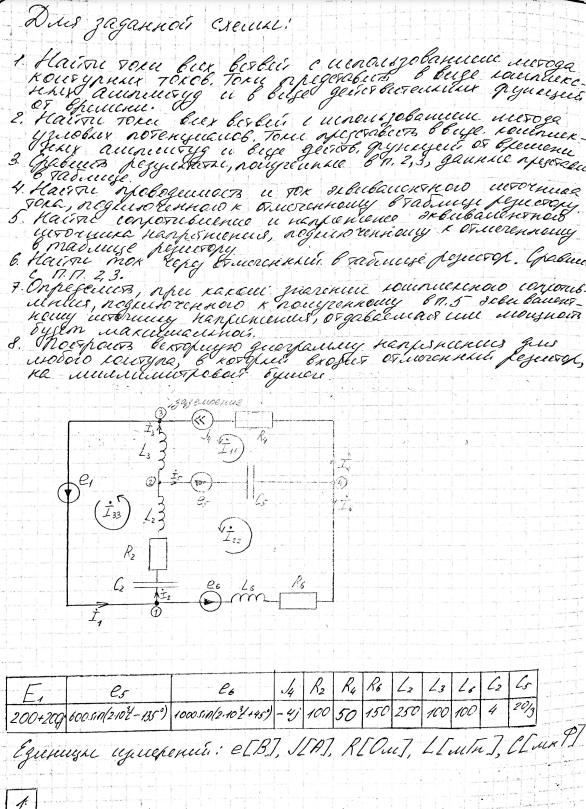 Для заданной схемы:
1. Найти токи всех ветвей с использованием метода
контурных токов. Токи представить в виде комплекс-
ных амплитуд и в виде действительных функций
от времени.
2. Найти токи всех ветвей с использованием метода
узловых потенциалов. Токи представить в виде комплек-
сных амплитуд и виде действ. функций от времени
3. Сравнить результаты, полученные в п. 2,3, данные представ
в таблице.
4. Найти проводимость и ток эквивалентного источника
тока, подключенного к отмеченному в таблице резистору
5. Найти сопротивление и напряжение эквивалентного
источника напряжения, подключенному к отмеченному
в таблице резистору
6. Найти ток через отмеченный в таблице резистор. Сравни
с п.п. 2,3.
7. Определить, при каком значении комплексного сопротив-
ления, подключенного к полученному в п.5 эквивалент-
ному источнику напряжения, отдаваемая им мощность
будет максимальной.
8. Построить векторную диаграмму напряжения для
любого контура, в который входит отмеченный резистор,
на миллиметровой бумаге.
заземление
3
I3 J4 R4
L3 I11
e1 2 I5 e5 C5 4
I33 L2 I22
R2
C2 I2 e6 L6 R6
I1 1
E1 e5 e6 J4 R2 R4 R6 L2 L3 L6 C2 C5
200+200j 600sin(2·10³t-135°) 1000sin(2·10³t+45°) -4j 100 50 150 250 100 100 4 20/3
Единицы измерений: e[В], J[А], R[Ом], L[мГн], C[мкФ]
1.